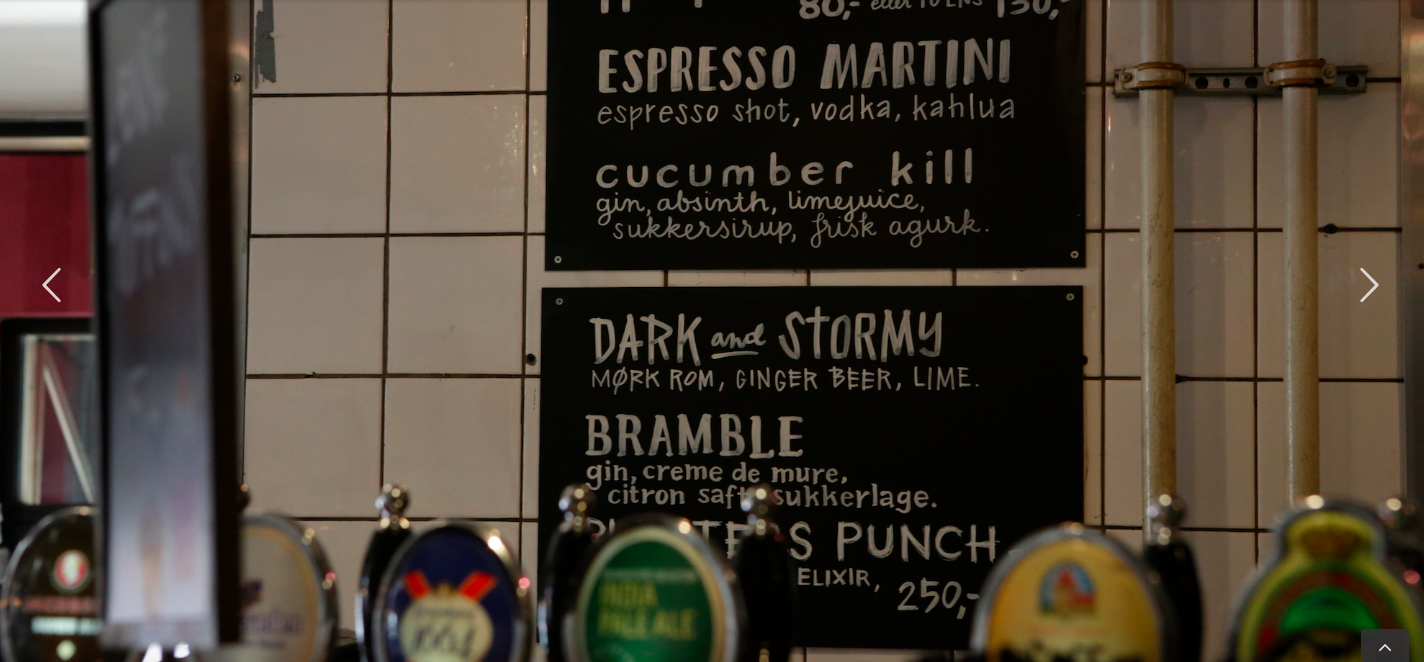 80,- eller TO ENS 130,-
ESPRESSO MARTINI
espresso shot, vodka, kahlua
cucumber kill
gin, absinth, limejuice,
sukkersirup, frisk agurk.
DARK and STORMY
MØRK ROM, GINGER BEER, LIME.
BRAMBLE
gin, creme de mure,
citron saft, sukkerlage.
PUNCH
ELIXIR, 250,-
1664
INDIA
PALE ALE